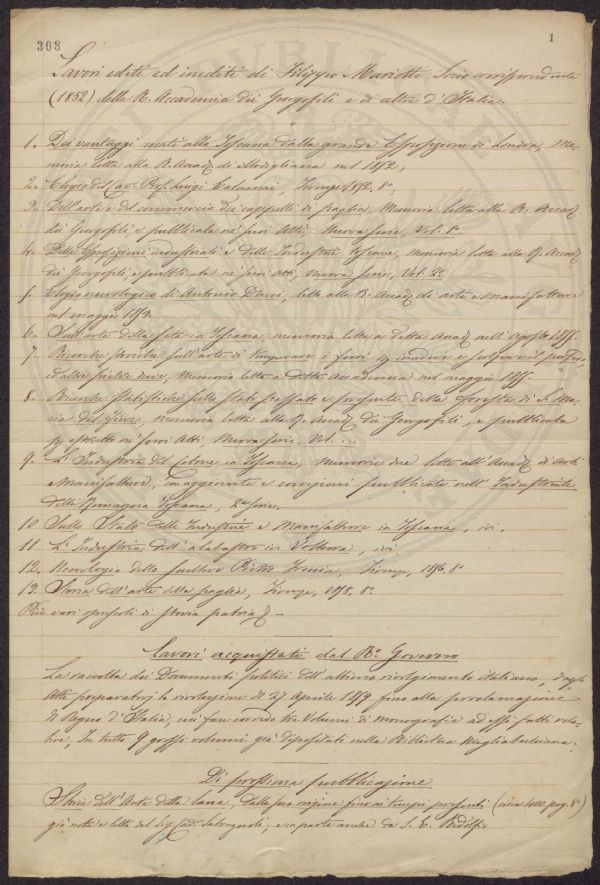 308
1
Lavori editi ed inediti di Filippo Mariotti Socio corrispondente
(1852) della R. Accademia dei Georgofili e di altre d'Italia.
1. Dei vantaggi recati alla Toscana dalla grande Esposizione di Londra, Me-
moria letta alla R. Accad. di Modigliana nel 1852;
2. Elogio del Cav. Prof. Luigi Calamai, Firenze, 1852, 8°;
3. Dell'arte e del commercio dei cappelli di paglia, Memoria letta alla R. Accad.
dei Georgofili e pubblicata ne' suoi Atti, Nuova serie, Vol. 1°.
4. Delle Esposizioni industriali e delle Industrie toscane, memoria letta alla R. Accad.
dei Georgofili e pubblicata ne' suoi atti, nuova serie, Vol. 2°.
5. Elogio necrologico di Antonio, letto alla R. Accad. di arti e manifatture
nel maggio 1853.
6. Sull'arte della seta in Toscana, memoria letta a detta Accad. nell'Agosto 1855.
7. Ricerche storiche sull'arte di temperare i ferri per incidere e scolpire il porfido,
ed altre pietre dure, Memoria letta a detta Accademia nel maggio 1855.
8. Ricerche statistiche sullo stato passato e presente della foresta di S. Ma-
ria del Fiore, memoria letta alla R. Accad. dei Georgofili, e pubblicata
per estratto ne' suoi Atti, Nuova serie, Vol. ...
9. L'Industria del Cotone in Toscana, memorie due lette all'Accad. d'Arti
e Manifatture, con aggiunte e correzioni pubblicate nell'Industriale
della Romagna Toscana, 2a serie.
10 Sullo Stato delle Industrie e Manifatture in Toscana, ivi.
11 L'Industria dell'alabastro in Volterra, ivi
12. Necrologia dello scultore Pietro Freccia, Firenze, 1856. 8°
13. Storia dell'arte della paglia, Firenze, 1858. 8°.
Più vari opuscoli di storia patria —
Lavori acquistati dal R°. Governo
La raccolta dei Documenti politici dell'ultimo rivolgimento italiano, dagli
Atti preparatorj la rivoluzione di 27 Aprile 1859 fino alla proclamazione
di Regno d'Italia, cui fan corredo tre Volumi di monografie ad essi fatti rela-
tive; In tutto 9 grossi volumi già depositati nella Biblioteca Magliabechiana.
Di prossima pubblicazione
Storia dell'Arte della lana, dalla sua origine fino ai tempi presenti (circa 400 pag. 8°)
già nota e letta del Sig. Cad., e in parte anche da S. E. Ridolfi.